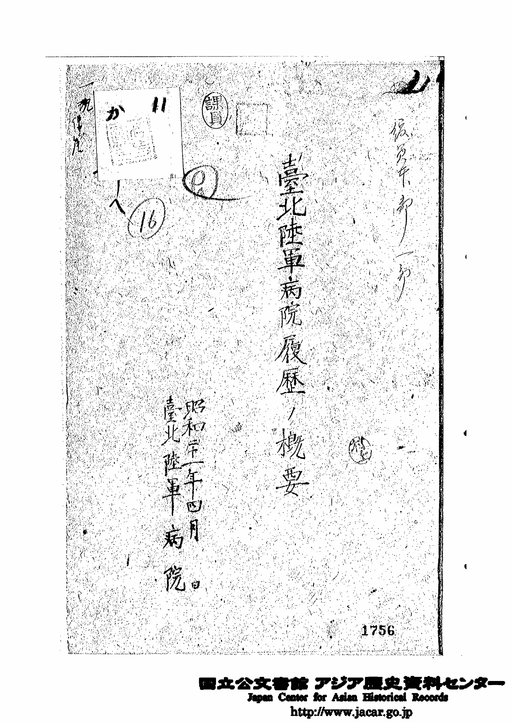 臺北陸軍病院履歴ノ概要
昭和二十一年四月 日
臺北陸軍病院
か 11
課員
16
1756
国立公文書館 アジア歴史資料センター
Japan Center for Asian Historical Records
http://www.jacar.go.jp